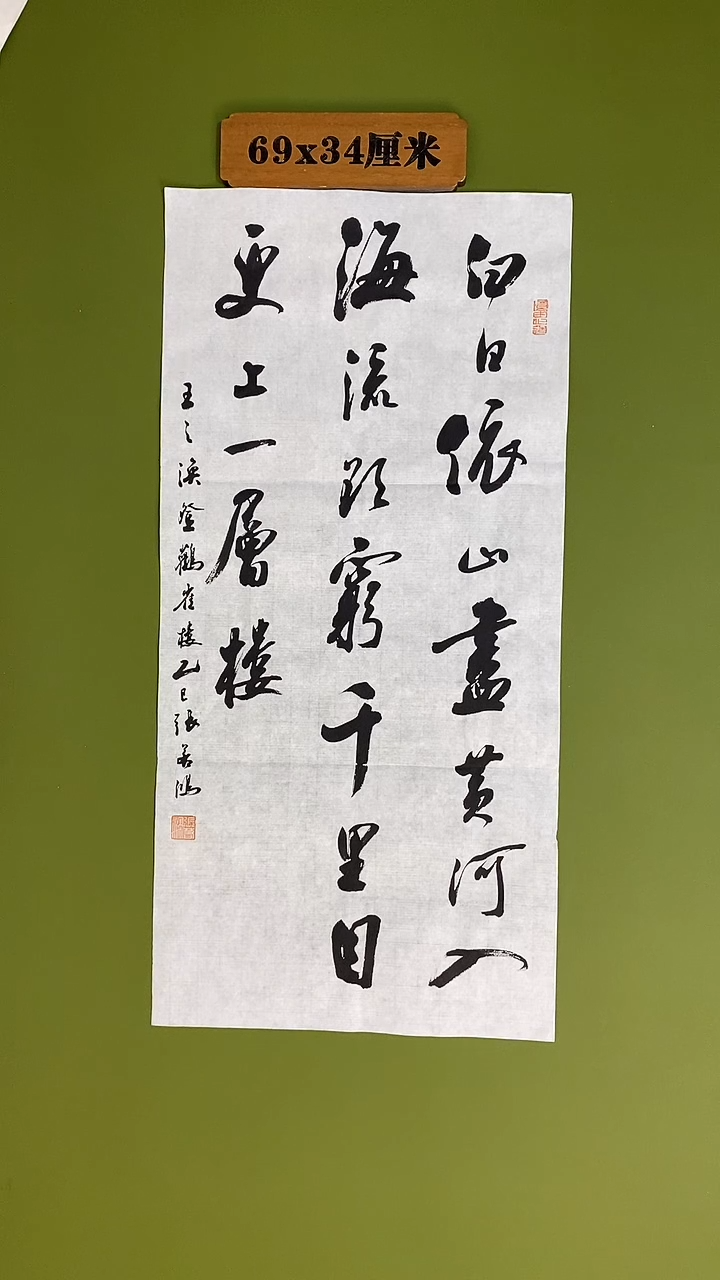 69x34厘米
白日依山盡黄河入
海流欲窮千里目
更上一層樓
王之渙登鸛雀樓乙巳張若鴻